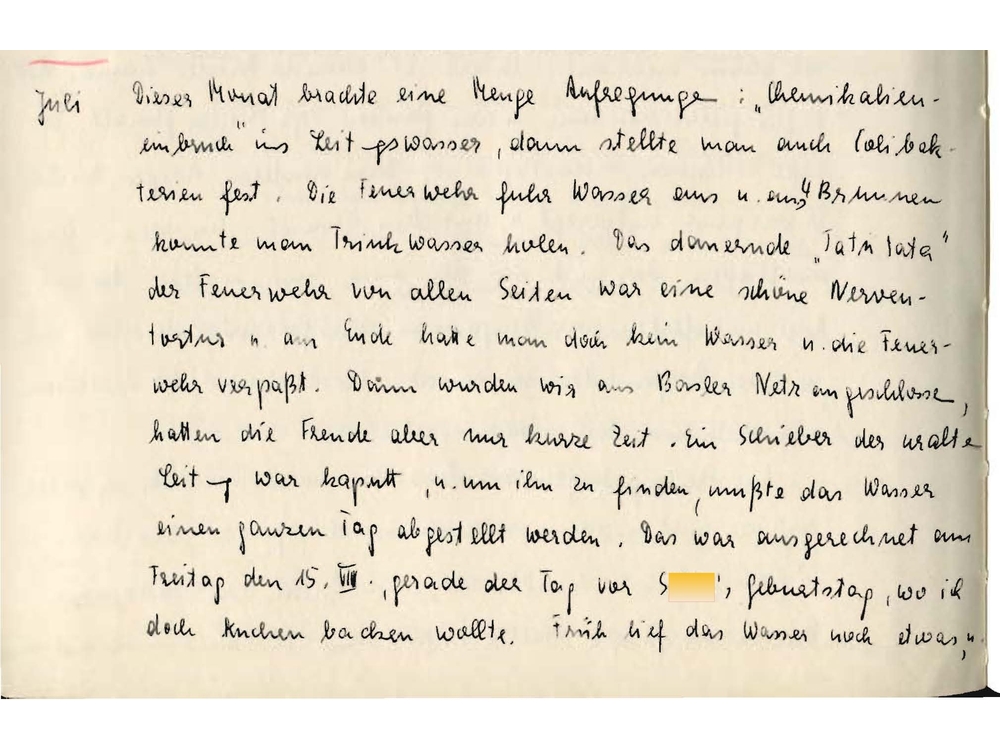 Juli Dieser Monat brachte eine Menge Aufregunge : „Chemikalien-
einbruch" ins Leitgswasser, dann stellte man auch Colibak-
terien fest. Die Feuerwehr fuhr Wasser aus u. aus 4 Brunnen
konnte man Trinkwasser holen. Das dauernde „Tatü tata"
der Feuerwehr von allen Seiten war eine schöne Nerven-
tortur u. am Ende hatte man doch kein Wasser u. die Feuer-
wehr verpaßt. Dann wurden wir ans Basler Netz angeschlosse,
hatten die Freude aber nur kurze Zeit. Ein Schieber der uralte
Leitg war kaputt, u. um ihn zu finden, mußte das Wasser
einen ganzen Tag abgestellt werden. Das war ausgerechnet am
Freitag den 15. VII., gerade der Tag vor S 's Geburtstag, wo ich
doch Kuchen backen wollte. Früh lief das Wasser noch etwas, u.